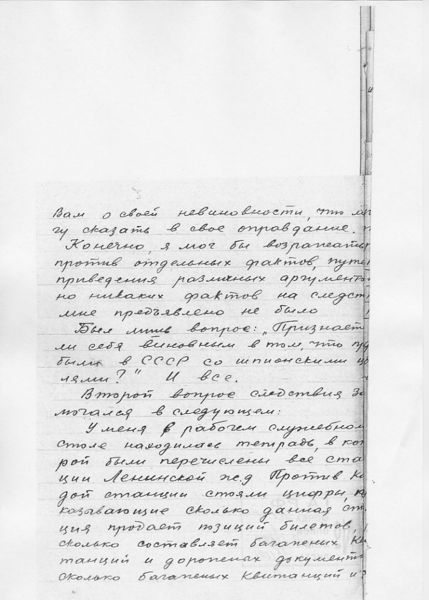 Вам о своей невиновности, что мо
гу сказать в свое оправдание.
Конечно, я мог бы возражать
против отдельных фактов, путе
приведения различных аргумент
но никаких фактов на следст
мне предъявлено не было
Был лишь вопрос: „Признает
ли себя виновным в том, что
были в СССР со шпионскими
лями?" И все.
Второй вопрос следствия за
могался в следующем:
У меня в рабочем служебном
столе находилась тетрадь, в кот
рой были перечислены все ста
ции Ленинской ж.д Против ка
дой станции стояли цифры,
казывающие сколько данная ст
ция продает позиций билетов,
сколько составляет багажных кв
танций и дорожных документ
сколько багажных квитанций и